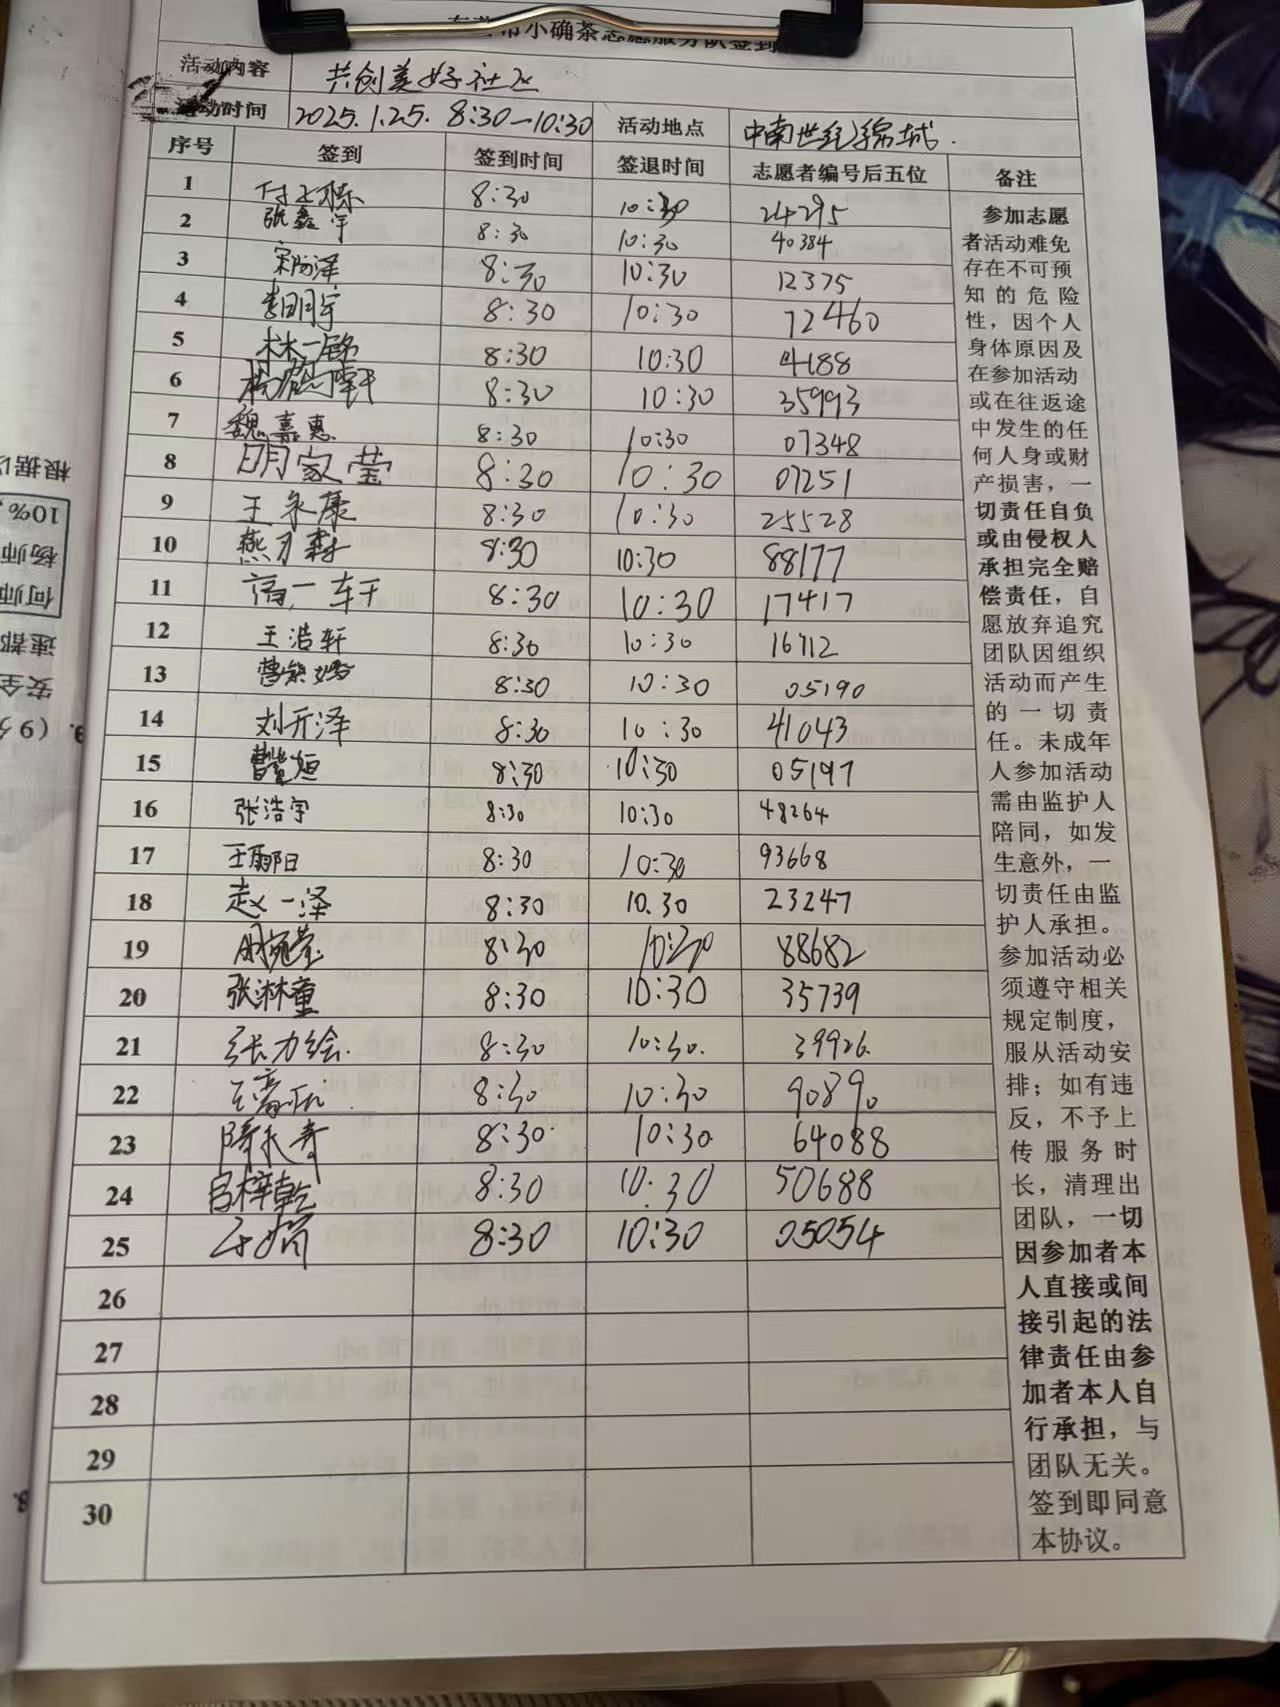 小确茶志愿服务队签到
活动内容 共创美好社区
活动时间 2025.1.25. 8:30—10:30 活动地点 中南世纪锦城.
序号 签到 签到时间 签退时间 志愿者编号后五位 备注
1 8:30 10:30 24295
2 张鑫宇 8:30 10:30 40384
3 8:30 10:30 12375
4 李明宇 8:30 10:30 72460
5 林一铭 8:30 10:30 4188
6 8:30 10:30 35993
7 魏嘉惠 8:30 10:30 07348
8 明家莹 8:30 10:30 07251
9 王永康 8:30 10:30 25528
10 8:30 10:30 88177
11 高一轩 8:30 10:30 17417
12 王浩轩 8:30 10:30 16712
13 8:30 10:30 05190
14 刘亓泽 8:30 10:30 41043
15 8:30 10:30 05197
16 张浩宇 8:30 10:30 48264
17 8:30 10:30 93668
18 赵一泽 8:30 10.30 23247
19 8:30 10:30 88682
20 张淋童 8:30 10:30 35739
21 张力绘. 8:30 10:30. 39926
22 8:30 10:30 90890
23 8:30. 10:30 64088
24 8:30 10:30 50688
25 8:30 10:30 05054
26
27
28
29
30
参加志愿
者活动难免
存在不可预
知的危险
性，因个人
身体原因及
在参加活动
或在往返途
中发生的任
何人身或财
产损害，一
切责任自负
或由侵权人
承担完全赔
偿责任，自
愿放弃追究
团队因组织
活动而产生
的一切责
任。未成年
人参加活动
需由监护人
陪同，如发
生意外，一
切责任由监
护人承担。
参加活动必
须遵守相关
规定制度，
服从活动安
排；如有违
反，不予上
传服务时
长，清理出
团队，一切
因参加者本
人直接或间
接引起的法
律责任由参
加者本人自
行承担，与
团队无关。
签到即同意
本协议。
根据以
10%
杨师
何师
速都
安全
9.（9分
8.